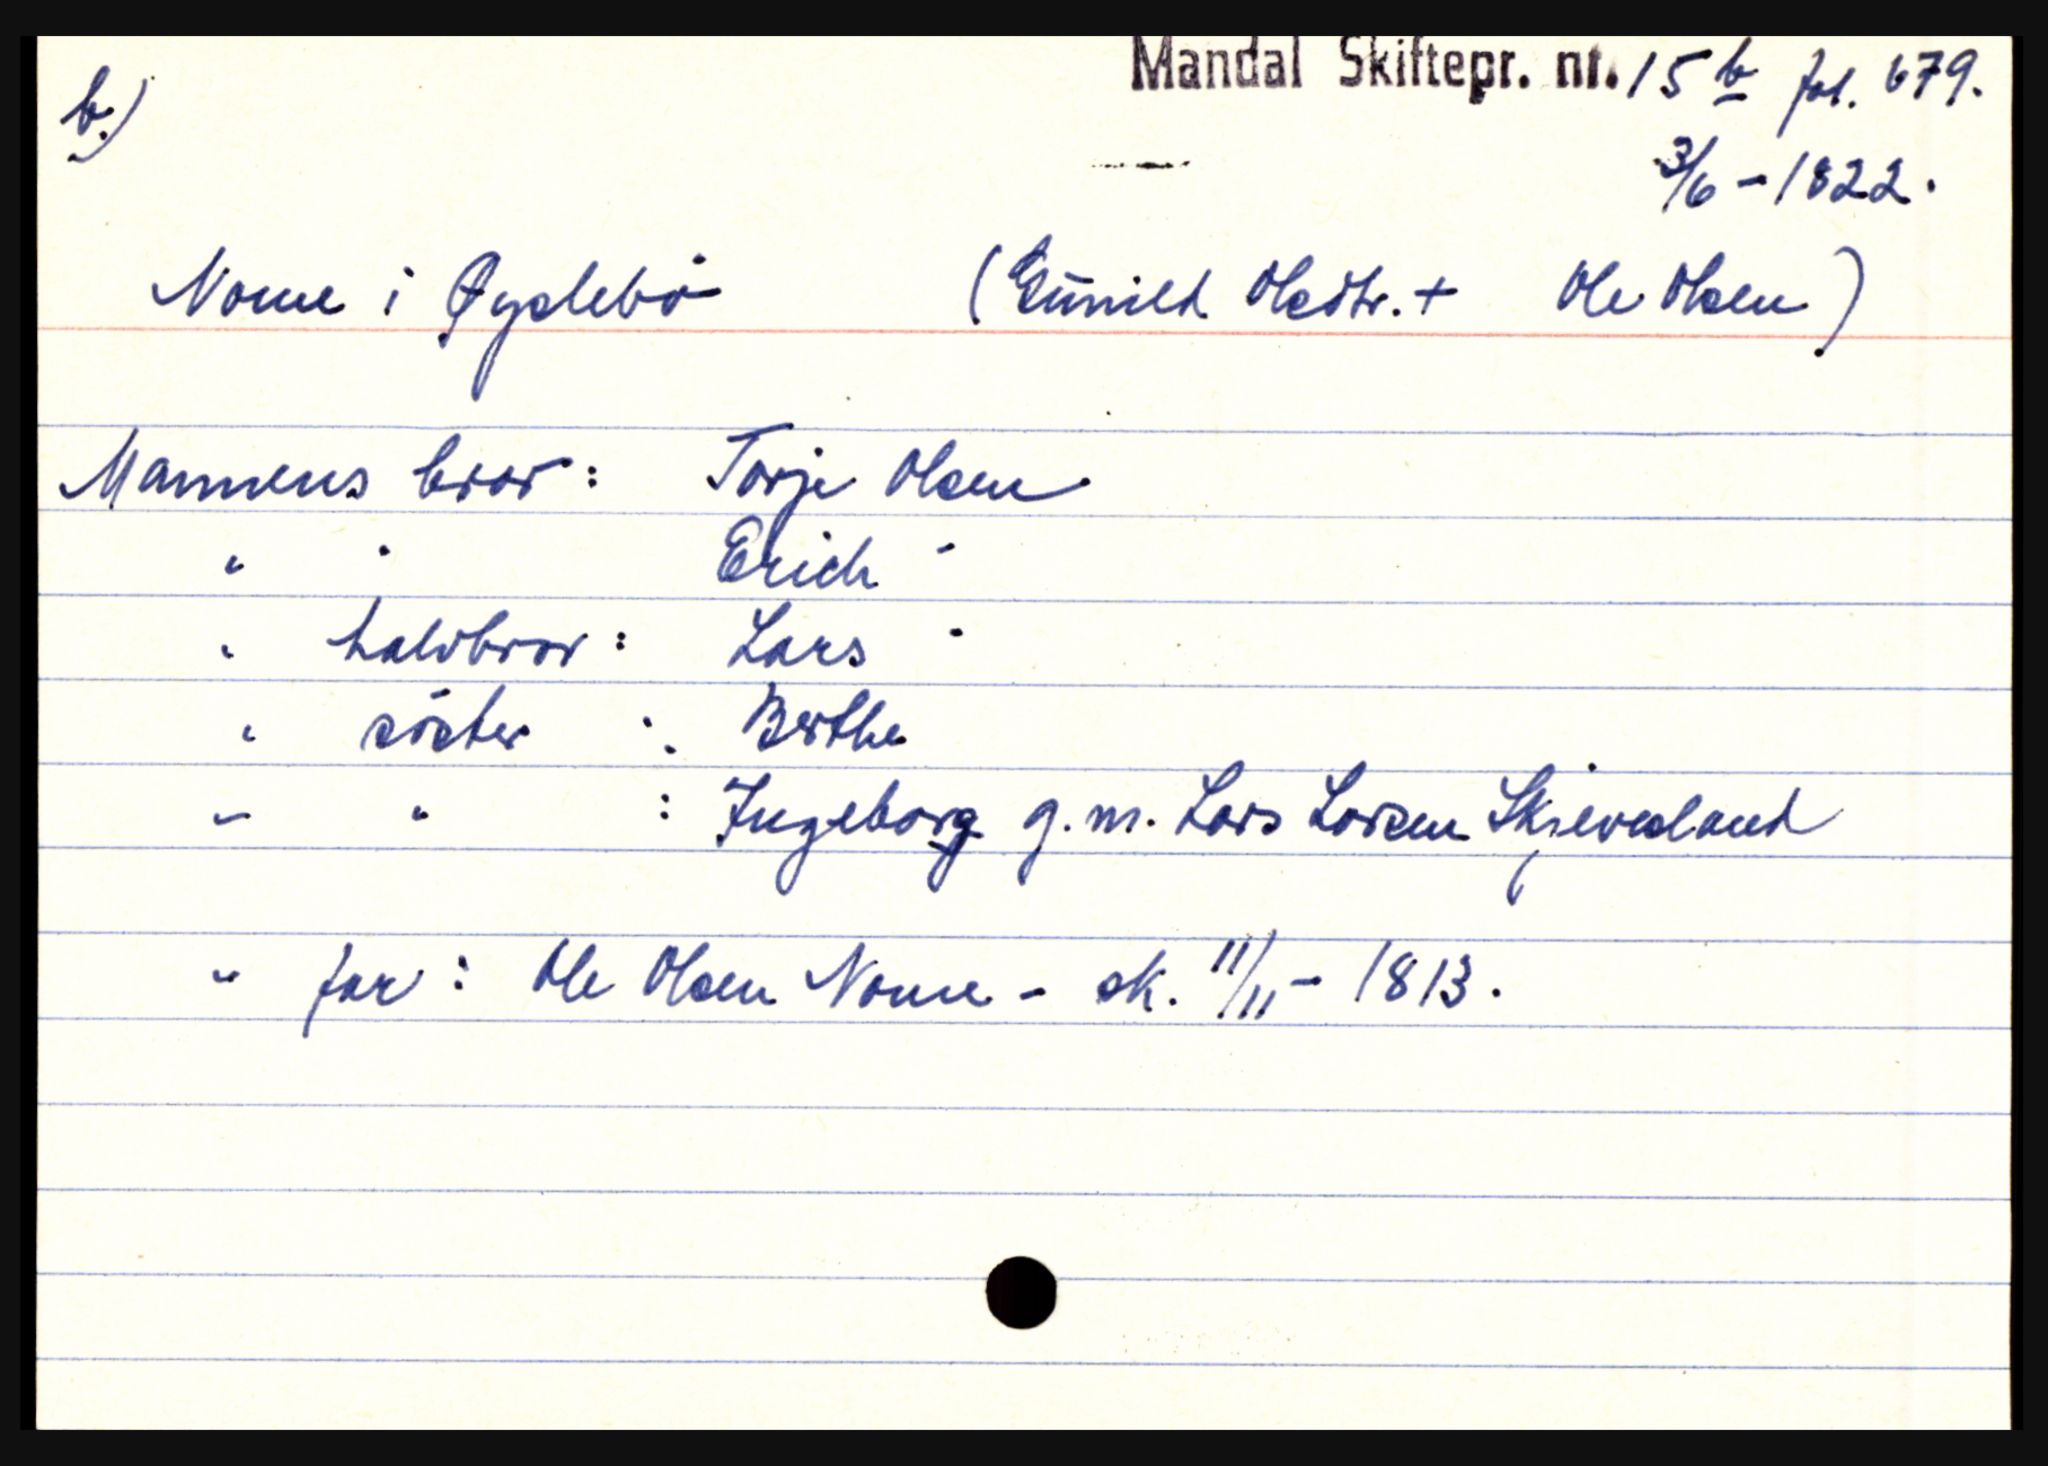 b.) Mandal Skiftepr. nr. 15 b fol. 679.
3/6 - 1822.
Nome i Øyslebö (Gunild Olsdtr. + Ole Olsen)
Mannens bror: Torje Olsen
" " Erich "
" halvbror: Lars "
" söster : Berthe
" " : Ingeborg g.m. Lars Larsen Skjævesland
" far: Ole Olsen Nome - sk. 11/11 - 1813.